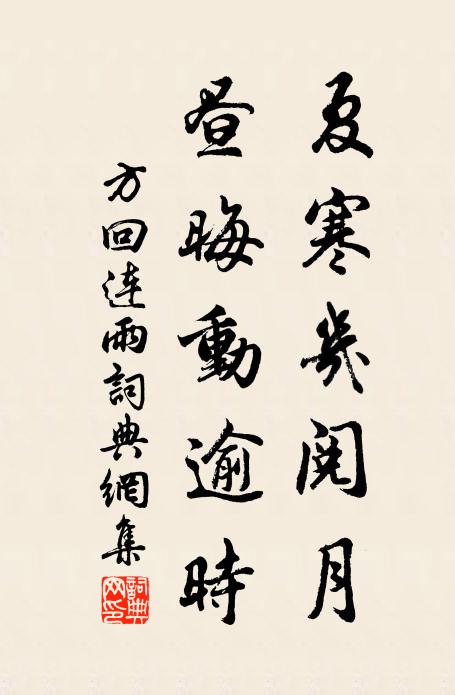 夏寒幾閱月
晝晦動逾時
方回連雨詞典網集
詞典網印